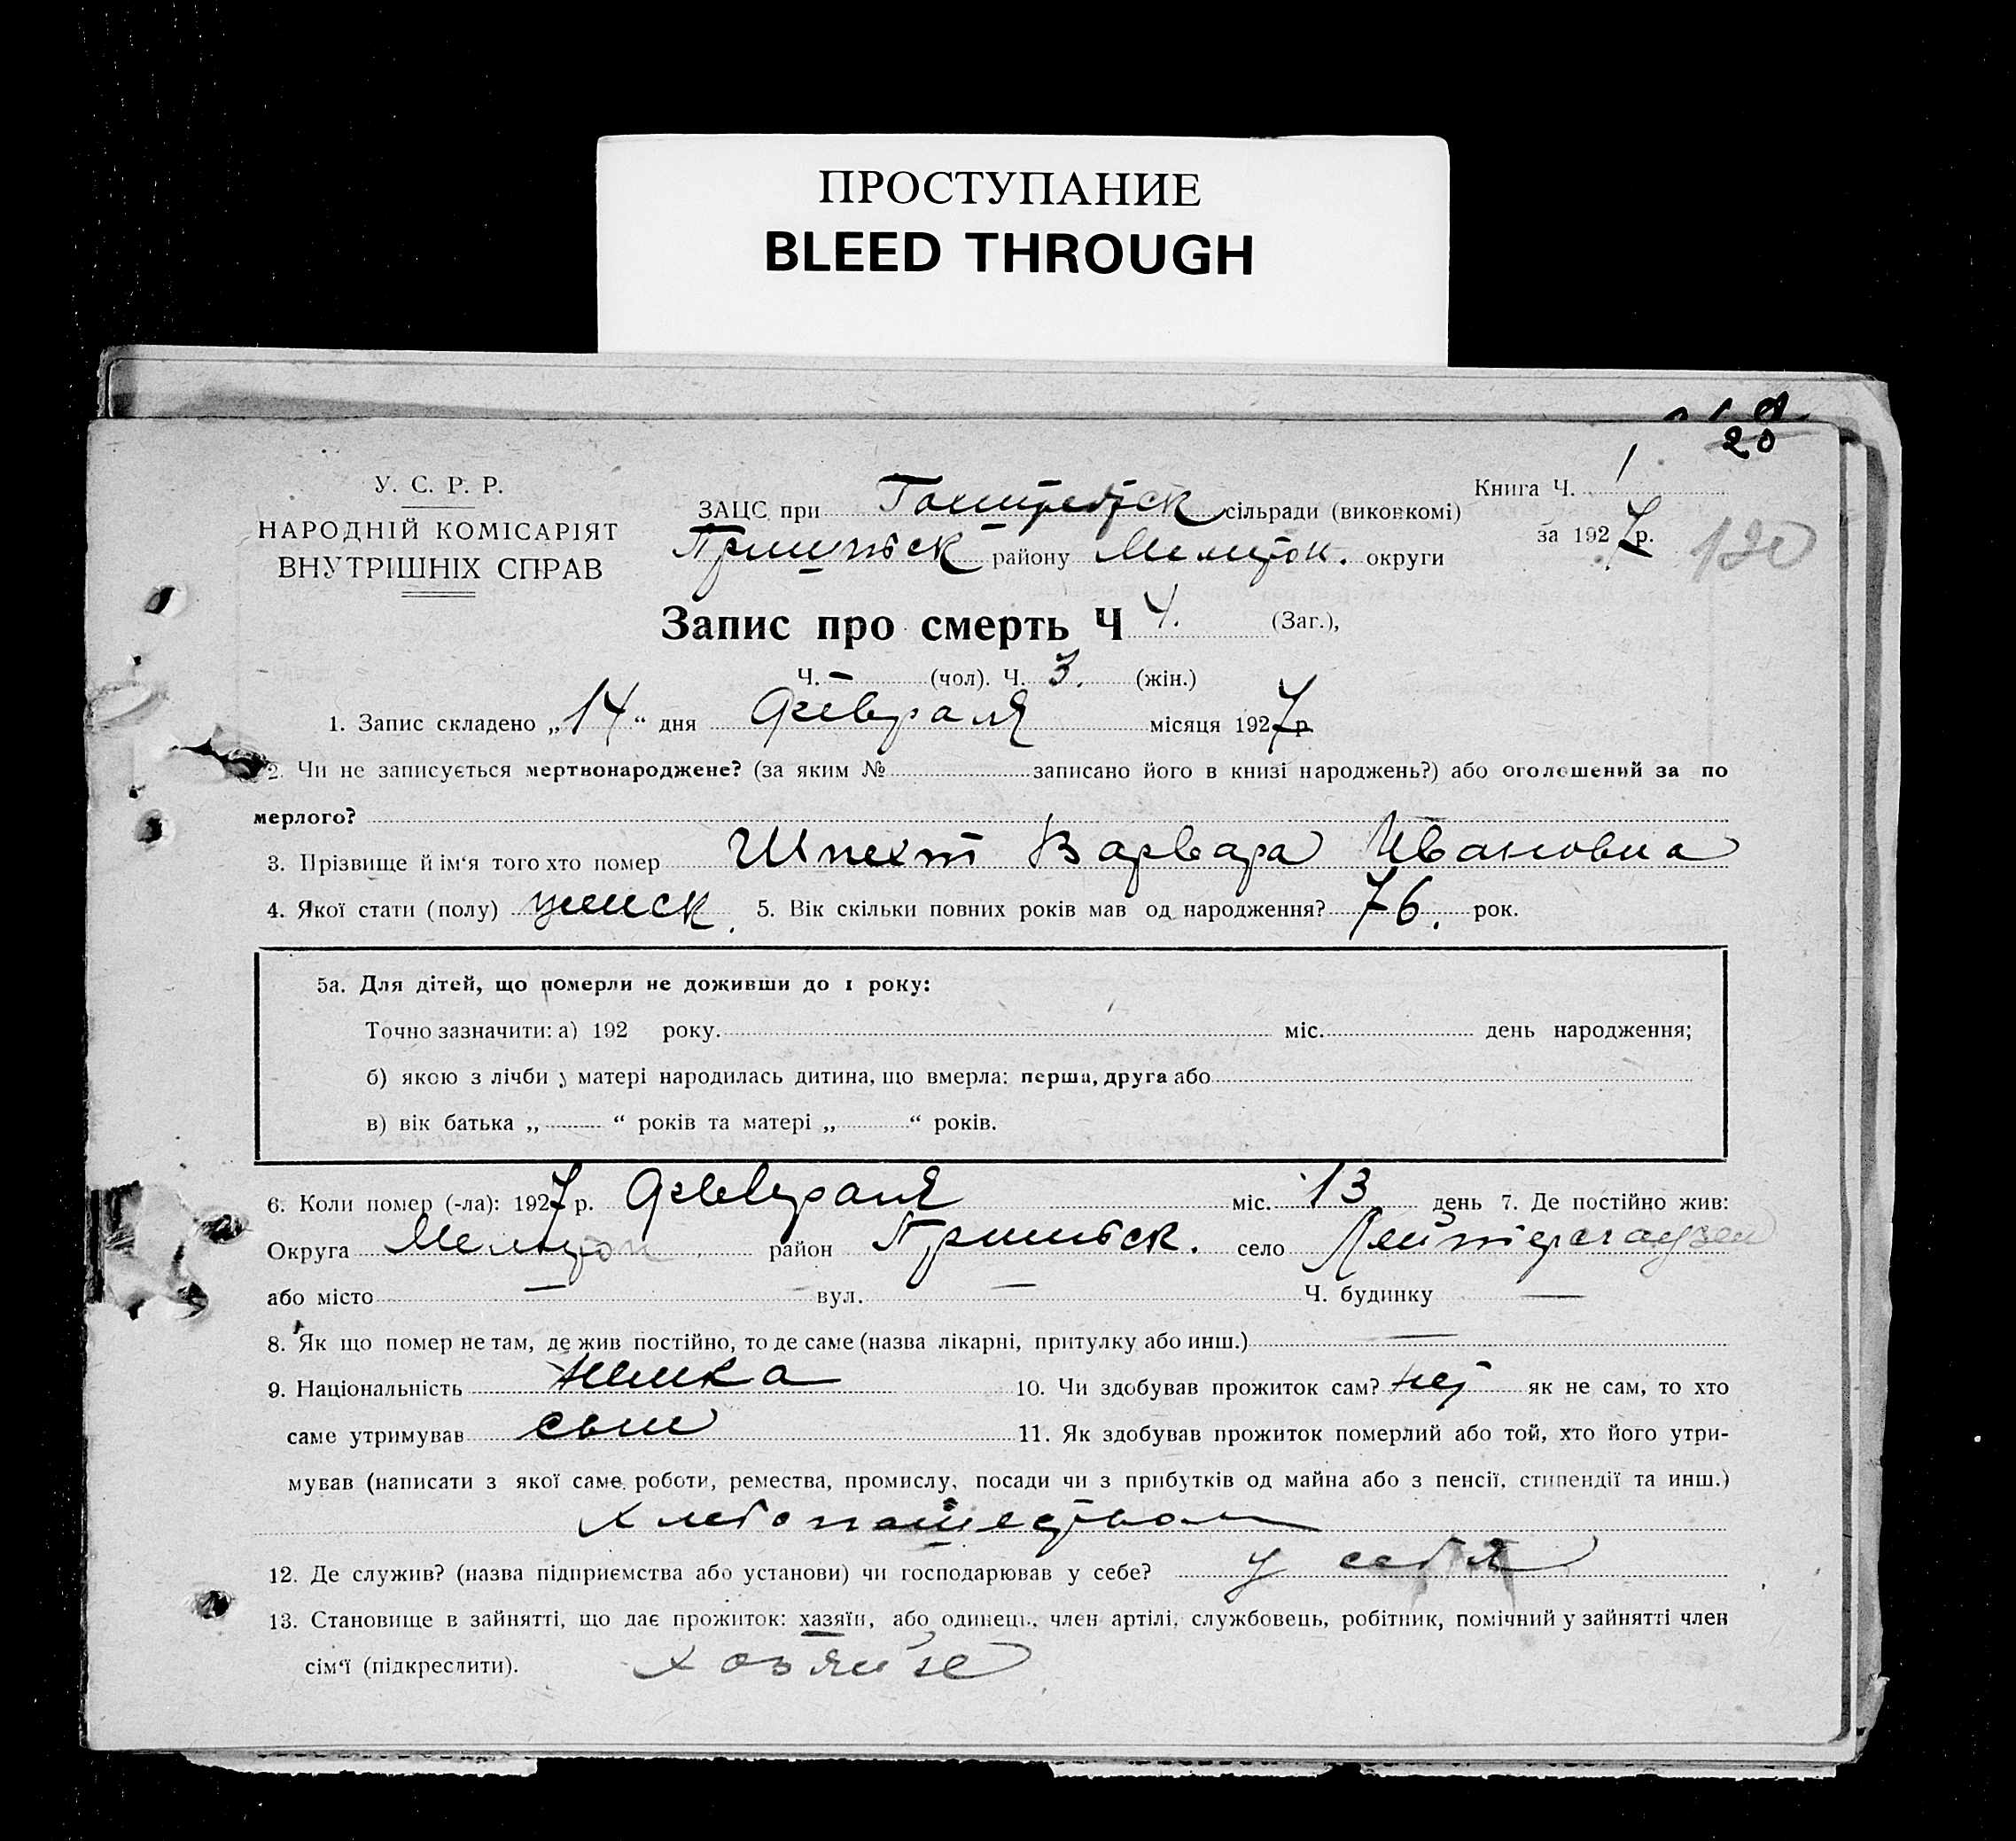 ПРОСТУПАНИЕ
BLEED THROUGH
20
У. С. Р. Р.
НАРОДНІЙ КОМІСАРІЯТ
ВНУТРІШНІХ СПРАВ
Книга Ч. 1
за 1927 р.
120
ЗАЦС при сільради (виконкомі)
Пришибск району Мелитоп. округи
Запис про смерть Ч 4. (Заг.),
Ч. – (чол). Ч. 3. (жін.)
1. Запис складено „14“ дня Февраля місяця 1927 р
2. Чи не записується мертвонароджене? (за яким № записано його в книзі народжень?) або оголошений за по
мерлого?
3. Прізвище й ім'я того хто помер Шпехт Варвара Ивановна
4. Якої стати (полу) женск. 5. Вік скільки повних років мав од народження? 76. рок.
5а. Для дітей, що померли не доживши до 1 року:
Точно зазначити: а) 192 року. міс. день народження;
б) якою з лічби у матері народилась дитина, що вмерла: перша, друга або
в) вік батька „ “ років та матері „ “ років.
6. Коли помер (-ла): 1927 р. Февраля міс. 13 день 7. Де постійно жив:
Округа Мелитоп. район Пришибск. село Лейтерсгаузен
або місто — вул. — Ч. будинку —
8. Як що помер не там, де жив постійно, то де саме (назва лікарні, притулку або инш.) —
9. Національність Немка 10. Чи здобував прожиток сам? нет як не сам, то хто
саме утримував сын 11. Як здобував прожиток померлий або той, хто його утри-
мував (написати з якої саме роботи, ремества, промислу, посади чи з прибутків од майна або з пенсії, стипендії та инш.)
хлебопашеством
12. Де служив? (назва підприємства або установи) чи господарював у себе? у себя
13. Становище в зайнятті, що дає прожиток: хазяїн, або одинець, член артілі, службовець, робітник, помічний у зайнятті член
сім'ї (підкреслити). хозяине